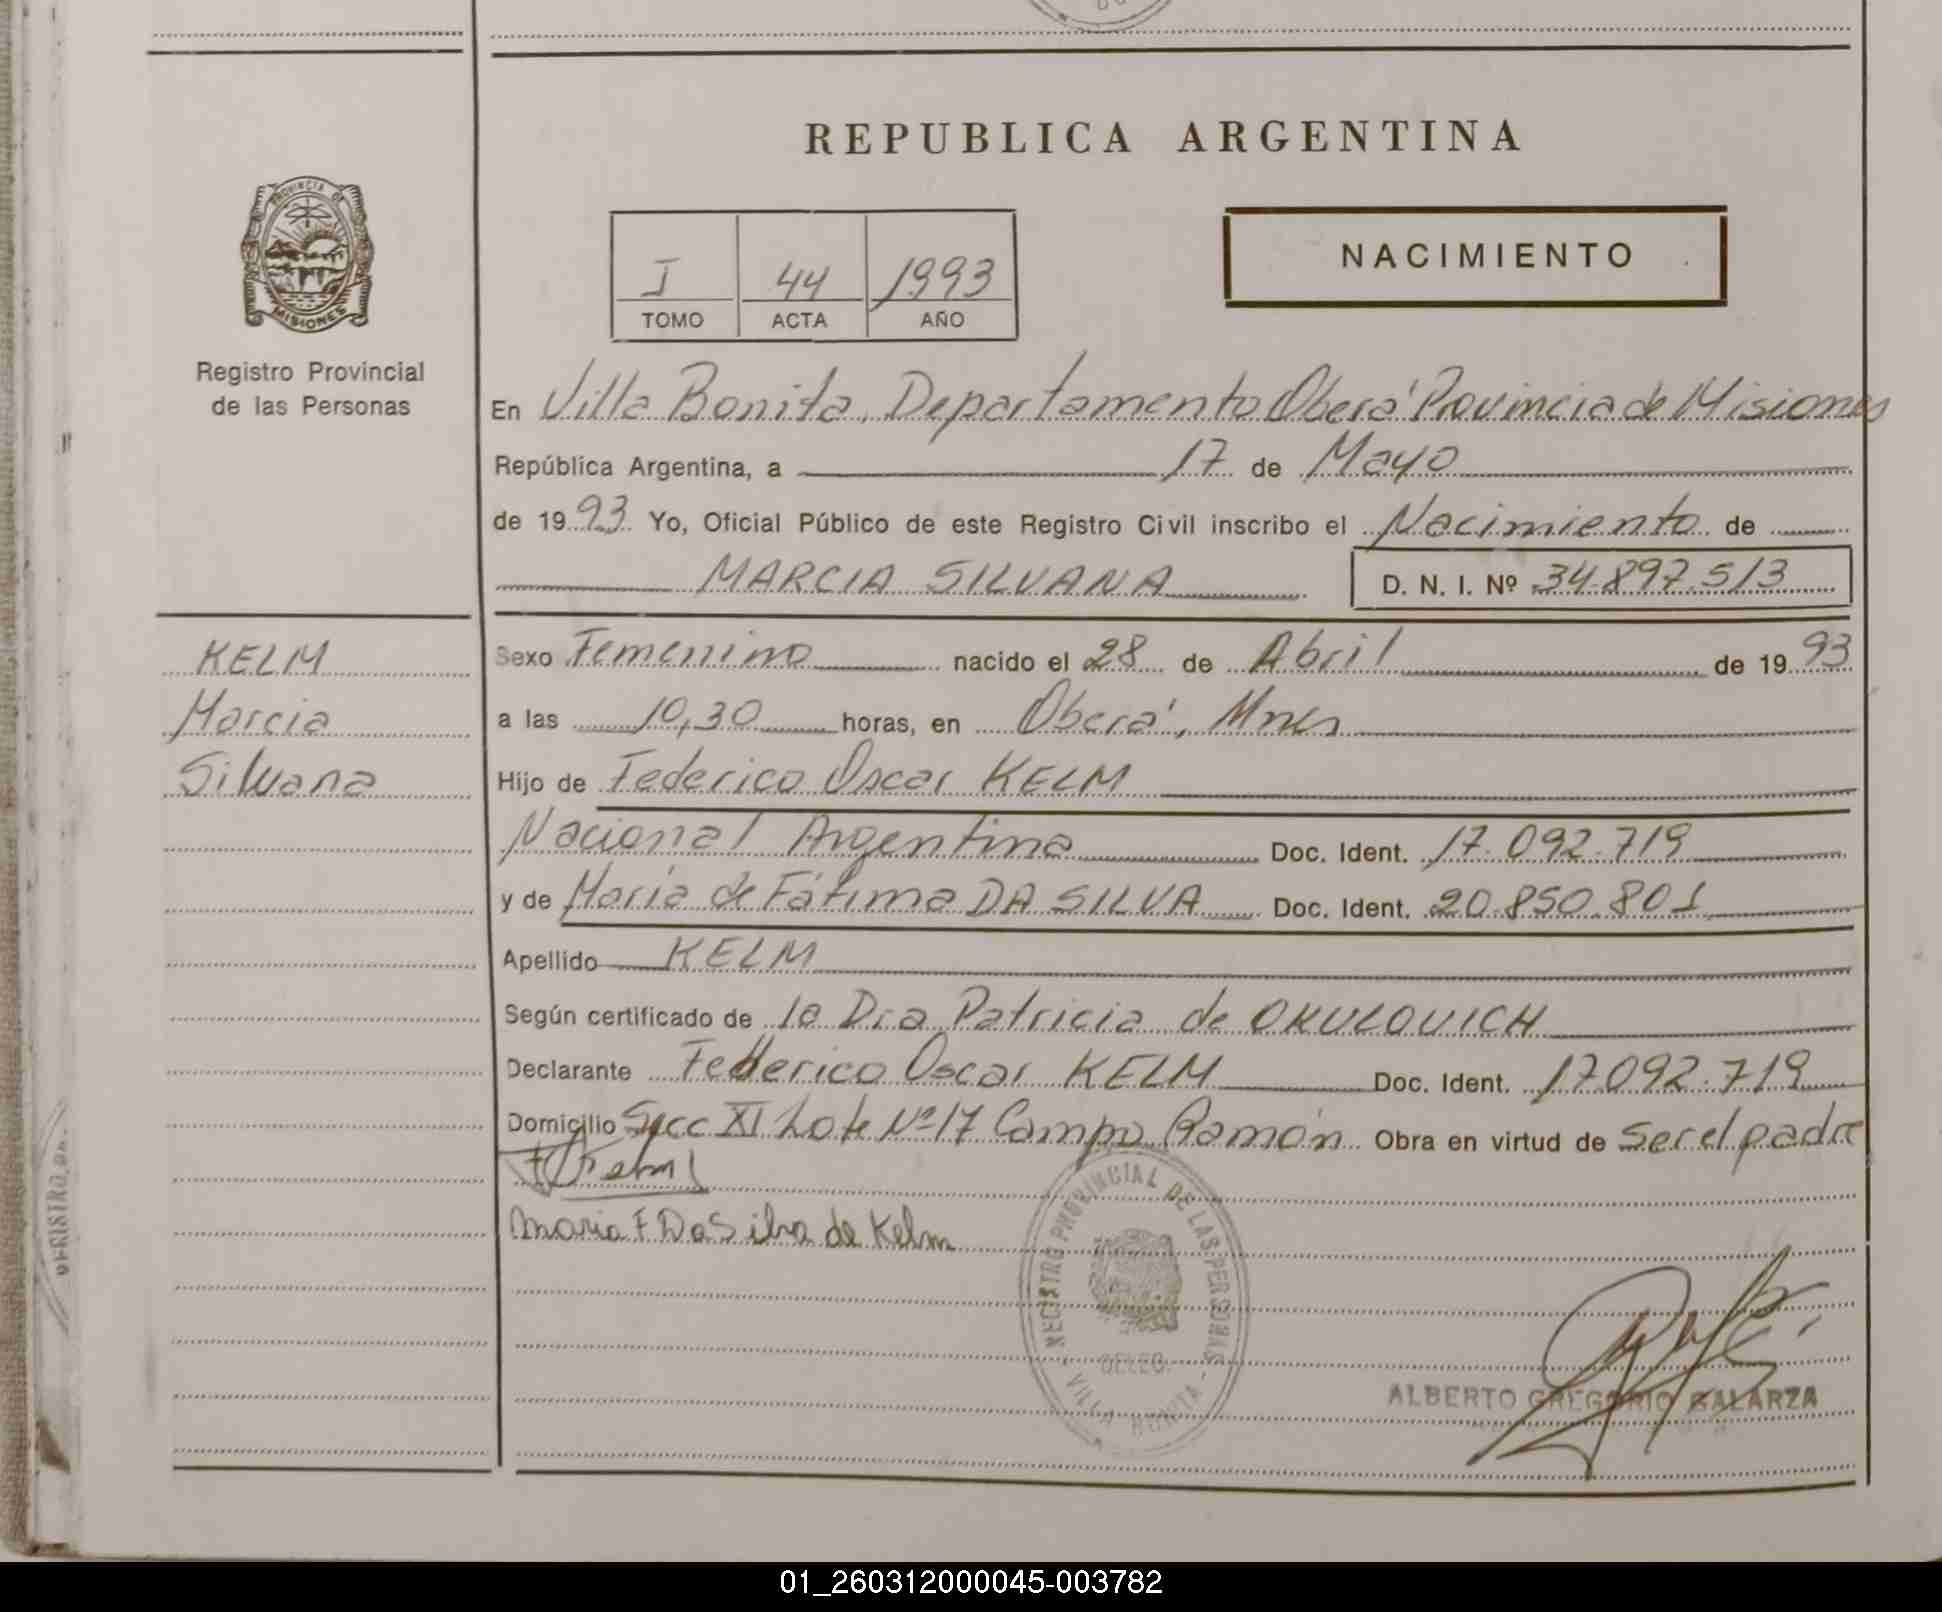 REPUBLICA ARGENTINA
PROVINCIA DE
MISIONES
Registro Provincial
de las Personas
I 44 1993
TOMO ACTA AÑO
NACIMIENTO
En Villa Bonita, Departamento Oberá Provincia de Misiones
República Argentina, a 17 de Mayo
de 1993 Yo, Oficial Público de este Registro Civil inscribo el Nacimiento de
MARCIA SILVANA D. N. I. Nº 34.897.513
KELM
Marcia
Silvana
Sexo Femenino nacido el 28 de Abril de 1993
a las 10,30 horas, en Oberá, Mnes
Hijo de Federico Oscar KELM
Nacional Argentina Doc. Ident. 17.092.719
y de María de Fátima DA SILVA Doc. Ident. 20.850.801
Apellido KELM
Según certificado de la Dra Patricia de OKULOVICH
Declarante Federico Oscar KELM Doc. Ident. 17092.719
Domicilio Secc XI Lote Nº 17 Campo Ramón Obra en virtud de ser el padre
Kelm
Maria F DaSilva de Kelm
REGISTRO PROVINCIAL DE LAS PERSONAS
DELEG.
- VILLA BONITA -
ALBERTO GREGORIO GALARZA
01_260312000045-003782